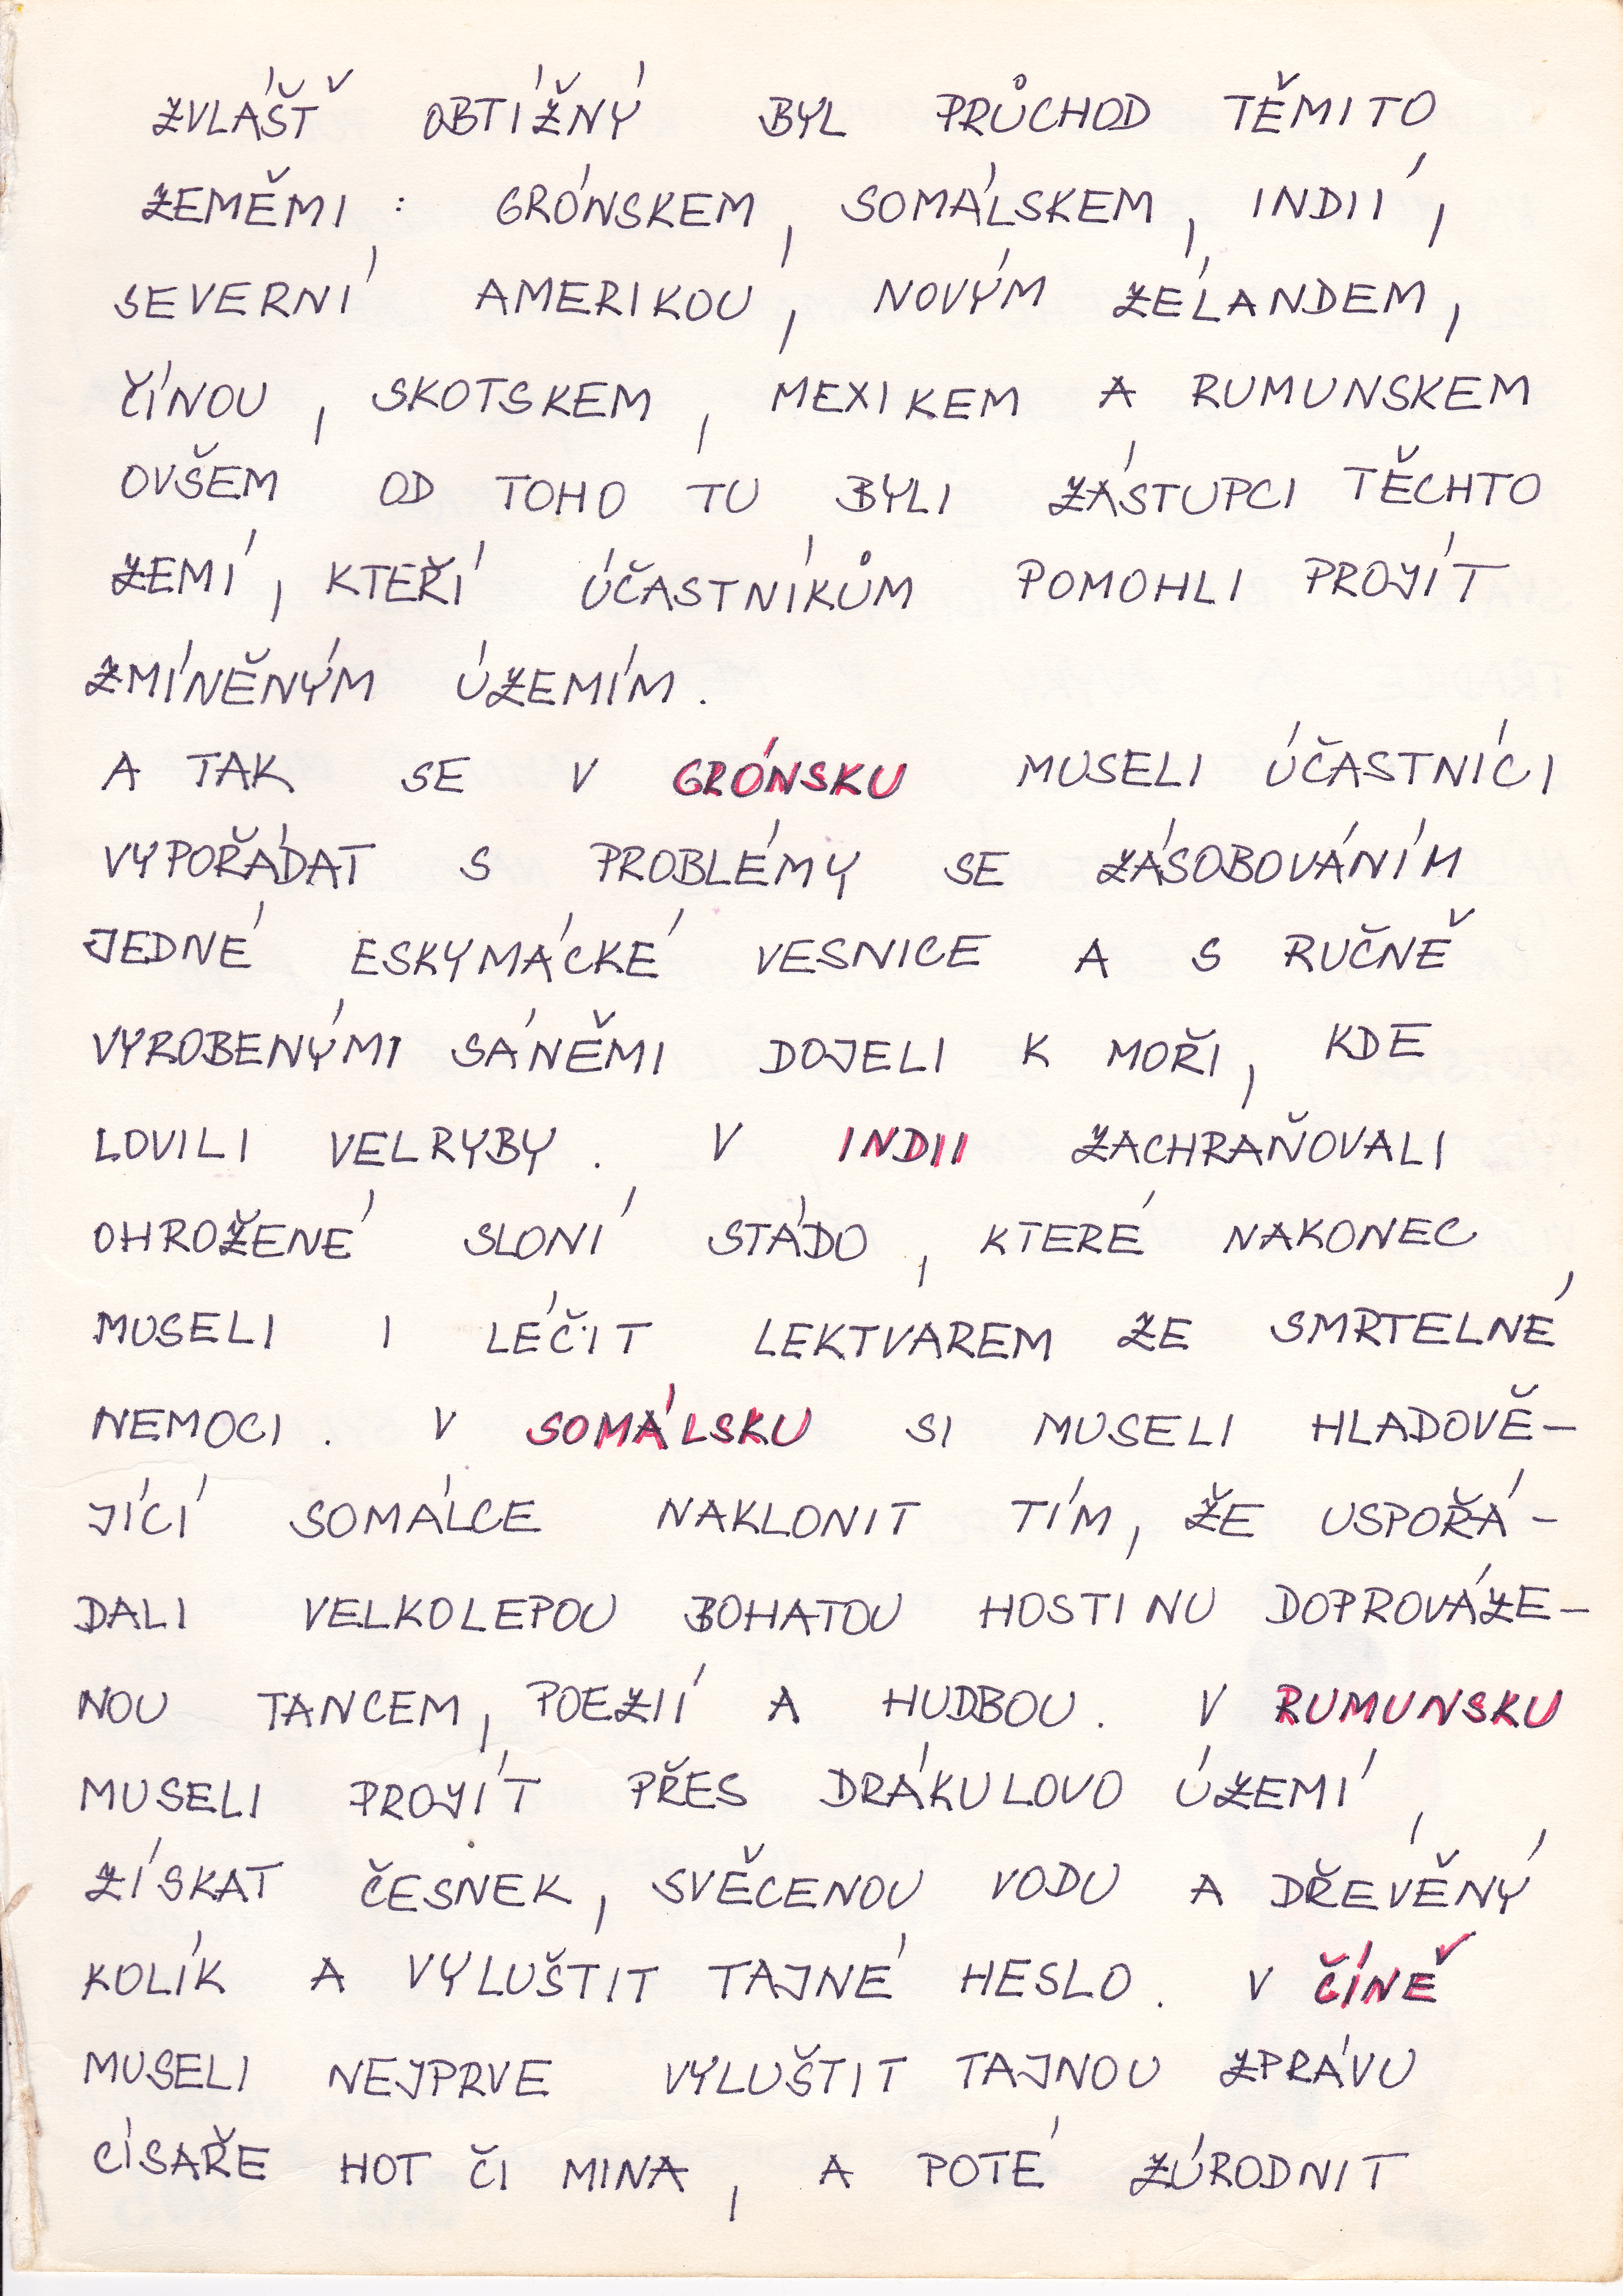 ZVLÁŠŤ OBTÍŽNÝ BYL PRŮCHOD TĚMITO
ZEMĚMI : GRÓNSKEM, SOMÁLSKEM, INDIÍ,
SEVERNÍ AMERIKOU, NOVÝM ZÉLANDEM,
ČÍNOU, SKOTSKEM, MEXIKEM A RUMUNSKEM
OVŠEM OD TOHO TU BYLI ZÁSTUPCI TĚCHTO
ZEMÍ, KTEŘÍ ÚČASTNÍKŮM POMOHLI PROJÍT
ZMÍNĚNÝM ÚZEMÍM.
A TAK SE V GRÓNSKU MUSELI ÚČASTNÍCI
VYPOŘÁDAT S PROBLÉMY SE ZÁSOBOVÁNÍM
JEDNÉ ESKYMÁCKÉ VESNICE A S RUČNĚ
VYROBENÝMI SÁNĚMI DOJELI K MOŘI, KDE
LOVILI VELRYBY. V INDII ZACHRAŇOVALI
OHROŽENÉ SLONÍ STÁDO, KTERÉ NAKONEC
MUSELI I LÉČIT LEKTVAREM ZE SMRTELNÉ
NEMOCI. V SOMÁLSKU SI MUSELI HLADOVĚ-
JÍCÍ SOMÁLCE NAKLONIT TÍM, ŽE USPOŘÁ-
DALI VELKOLEPOU BOHATOU HOSTINU DOPROVÁZE-
NOU TANCEM, POEZIÍ A HUDBOU. V RUMUNSKU
MUSELI PROJÍT PŘES DRÁKULOVO ÚZEMÍ,
ZÍSKAT ČESNEK, SVĚCENOU VODU A DŘEVĚNÝ
KOLÍK A VYLUŠTIT TAJNÉ HESLO. V ČÍNĚ
MUSELI NEJPRVE VYLUŠTIT TAJNOU ZPRÁVU
CÍSAŘE HOT ČI MINA, A POTÉ ZÚRODNIT